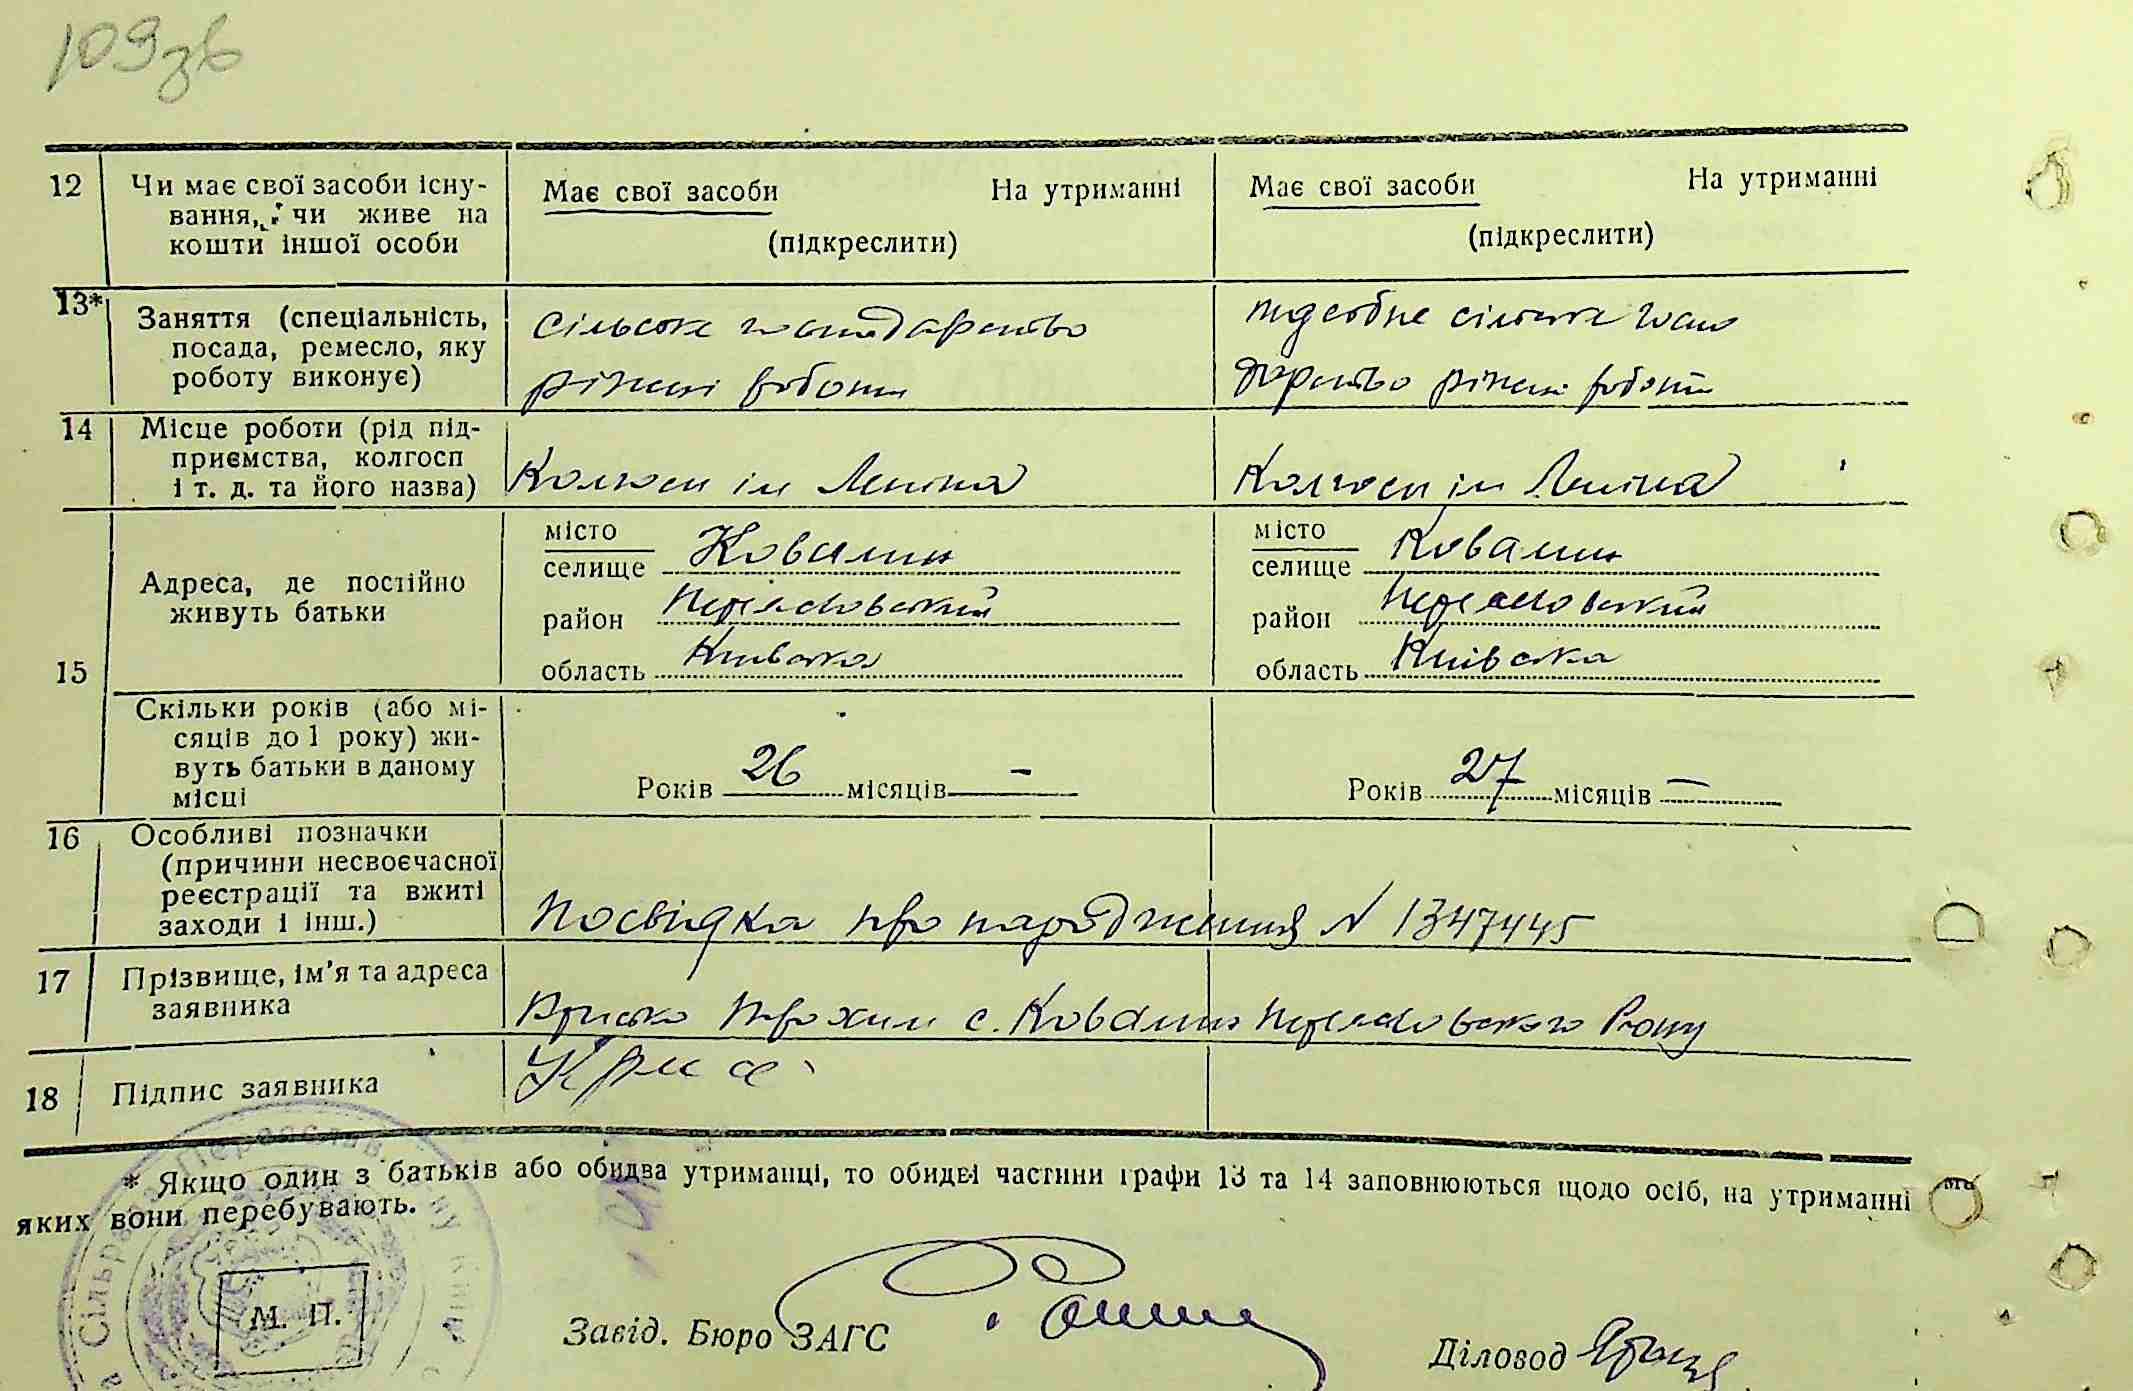 109зв
12 Чи має свої засоби існу-
вання, чи живе на
кошти іншої особи
Має свої засоби На утриманні
(підкреслити)
Має свої засоби На утриманні
(підкреслити)
13* Заняття (спеціальність,
посада, ремесло, яку
роботу виконує)
сільське господарство
різкі роботи
підсобне сільське госпо
дарство різкі роботи
14 Місце роботи (рід під-
приємства, колгосп
і т. д. та його назва)
Колгосп ім Леніна
Колгосп ім Леніна
15
Адреса, де постійно
живуть батьки
місто
селище Ковалин
район Переяславський
область Київська
місто
селище Ковалин
район Переяславський
область Київська
Скільки років (або мі-
сяців до 1 року) жи-
вуть батьки в даному
місці
Років 26 місяців —
Років 27 місяців —
16 Особливі позначки
(причини несвоєчасної
реєстрації та вжиті
заходи і інш.)
Посвідка про народження N 1347445
17 Прізвище, ім'я та адреса
заявника
Трохим с. Ковалин Переяславського Р-ону
18 Підпис заявника
* Якщо один з батьків або обидва утриманці, то обидві частини графи 13 та 14 заповнюються щодо осіб, на утриманні
яких вони перебувають.
М. П.
Завід. Бюро ЗАГС
Діловод